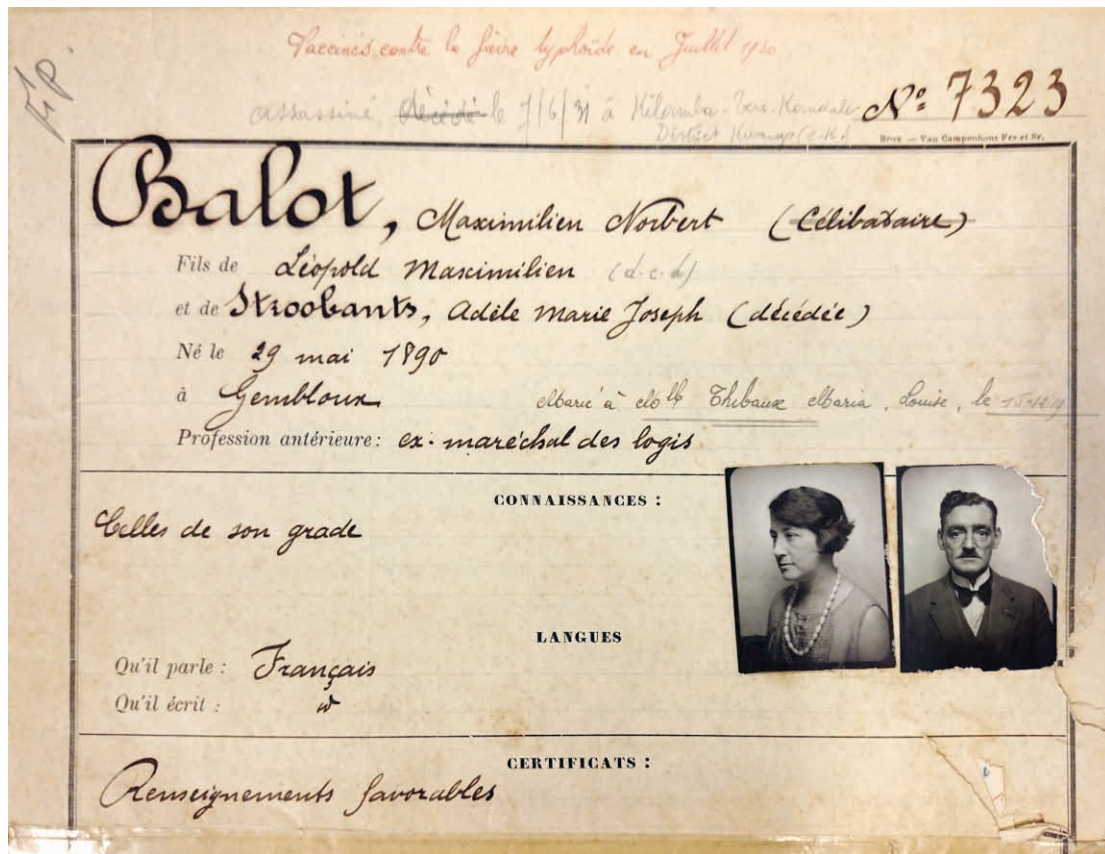 Vaccinés contre la fièvre typhoïde en Juillet 1930
assassiné décédé le 7/6/31 à Kilamba-vers-Kandale
District Kwango (C.K.)
N° 7323
Brux — Van Campenhout Frs et Sr.
Balot, Maximilien Norbert (Célibataire)
Fils de Léopold Maximilien (d.c.d)
et de Stroobants, Adèle Marie Joseph (décédée)
Né le 29 mai 1890
à Gembloux Marié à Mlle Thibaux Maria, Louise, le
Profession antérieure : ex-maréchal des logis
CONNAISSANCES :
Celles de son grade
LANGUES
Qu'il parle : Français
Qu'il écrit : id
CERTIFICATS :
Renseignements favorables